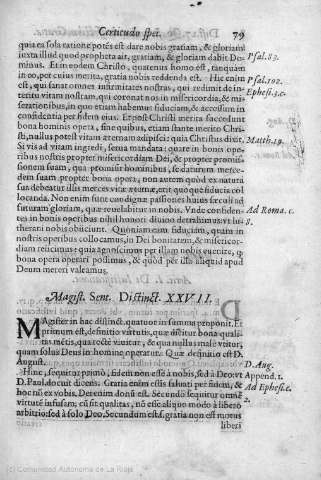 Certitudo spei. 79
quia ea sola ratione potẽs est dare nobis gratiam, & gloriam
iuxta illud quod propheta ait, gratiam, & gloriam dabit Do-
minus. Et in eodem Christo, quatenus homo est, tanquam
in eo, per cuius merita, gratia nobis reddenda est. Hic enim
est, qui sanat omnes infirmitates nostras, qui redimit de in-
teritu vitam nostram, qui coronat nos in misericordia, & mi-
serationibus, in quo etiam habemus fiduciam, & accessum in
confidentia per fidem eius. Et post Christi merita succedunt
bona hominis opera, sine quibus, etiam stante merito Chri-
sti, nullus potest vitam æternam adipisci: quia Christus dixit.
Si vis ad vitam ingredi, serua mandata: quare in bonis ope-
ribus nostris propter misericordiam Dei, & propter promis-
sionem suam, qua promisit hominibus, se daturum merce-
dem suam propter bona opera, non autem quòd ex natura
sua debeatur illis merces vitæ æternæ, erit quoque fiducia col
locanda. Non enim sunt condignæ passiones huius sæculi ad
futuram gloriam, quæ reuelabitur in nobis. Vnde confiden-
tes in bonis operibus nihil honori diuino detrahimus vt lu-
therani nobis obiiciunt. Quoniam eam fiduciam, quam in
nostris operibus collocamus, in Dei bonitatem, & misericor-
diam reiicimus: quia agnoscimus per illam nobis euenire, q̃
bona opera operari possimus, & quòd per illa aliquid apud
Deum mereri valeamus.
Psal. 83.
Psal. 102.
Ephesi. 3. c.
Matth. 19.
Ad Roma. c.
8.
Magist. Sent. Distinct. XXVII.
MAgister in hac distinct. quatuor in summa proponit. Et
primum est, definitio virtutis, quæ dicitur bona quali-
tas mẽtis, qua recte viuitur, & qua nullus malè vtitur,
quam solus Deus in homine operatur. Quæ definitio est D.
August.
Hinc, sequitur primò, fidem non esse à nobis, sed à Deo: vt
D. Paul. docuit dicens. Gratia enim estis saluati per fidem, &
hoc nõ ex vobis. Dei enim donũ est. Secũdò sequitur omnẽ
virtutẽ infusam, cũ sit qualitas, nõ esse aliquo modo à libero
arbitrio, sed à solo Deo. Secundum est, q̃ gratia non est motus
D. Aug.
Append. 1.
Ad Ephesi. c.
2.
liberi
(c) Comunidad Autónoma de La Rioja